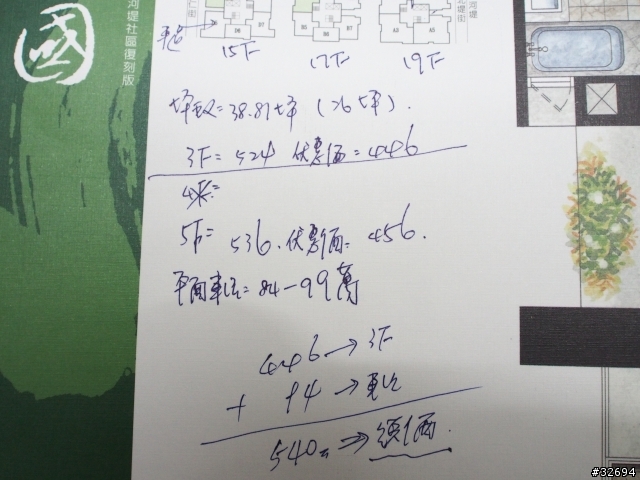 國
河堤社區復刻版
仁街
河堤街
15F 17F 19F
坪數=38.87坪(26坪).
3F=524 優惠價=446
4F=
5F=536.優惠價=456.
平面車位=84-99萬
446→3F
+ 94→車位
540萬⇒總價.
#32694